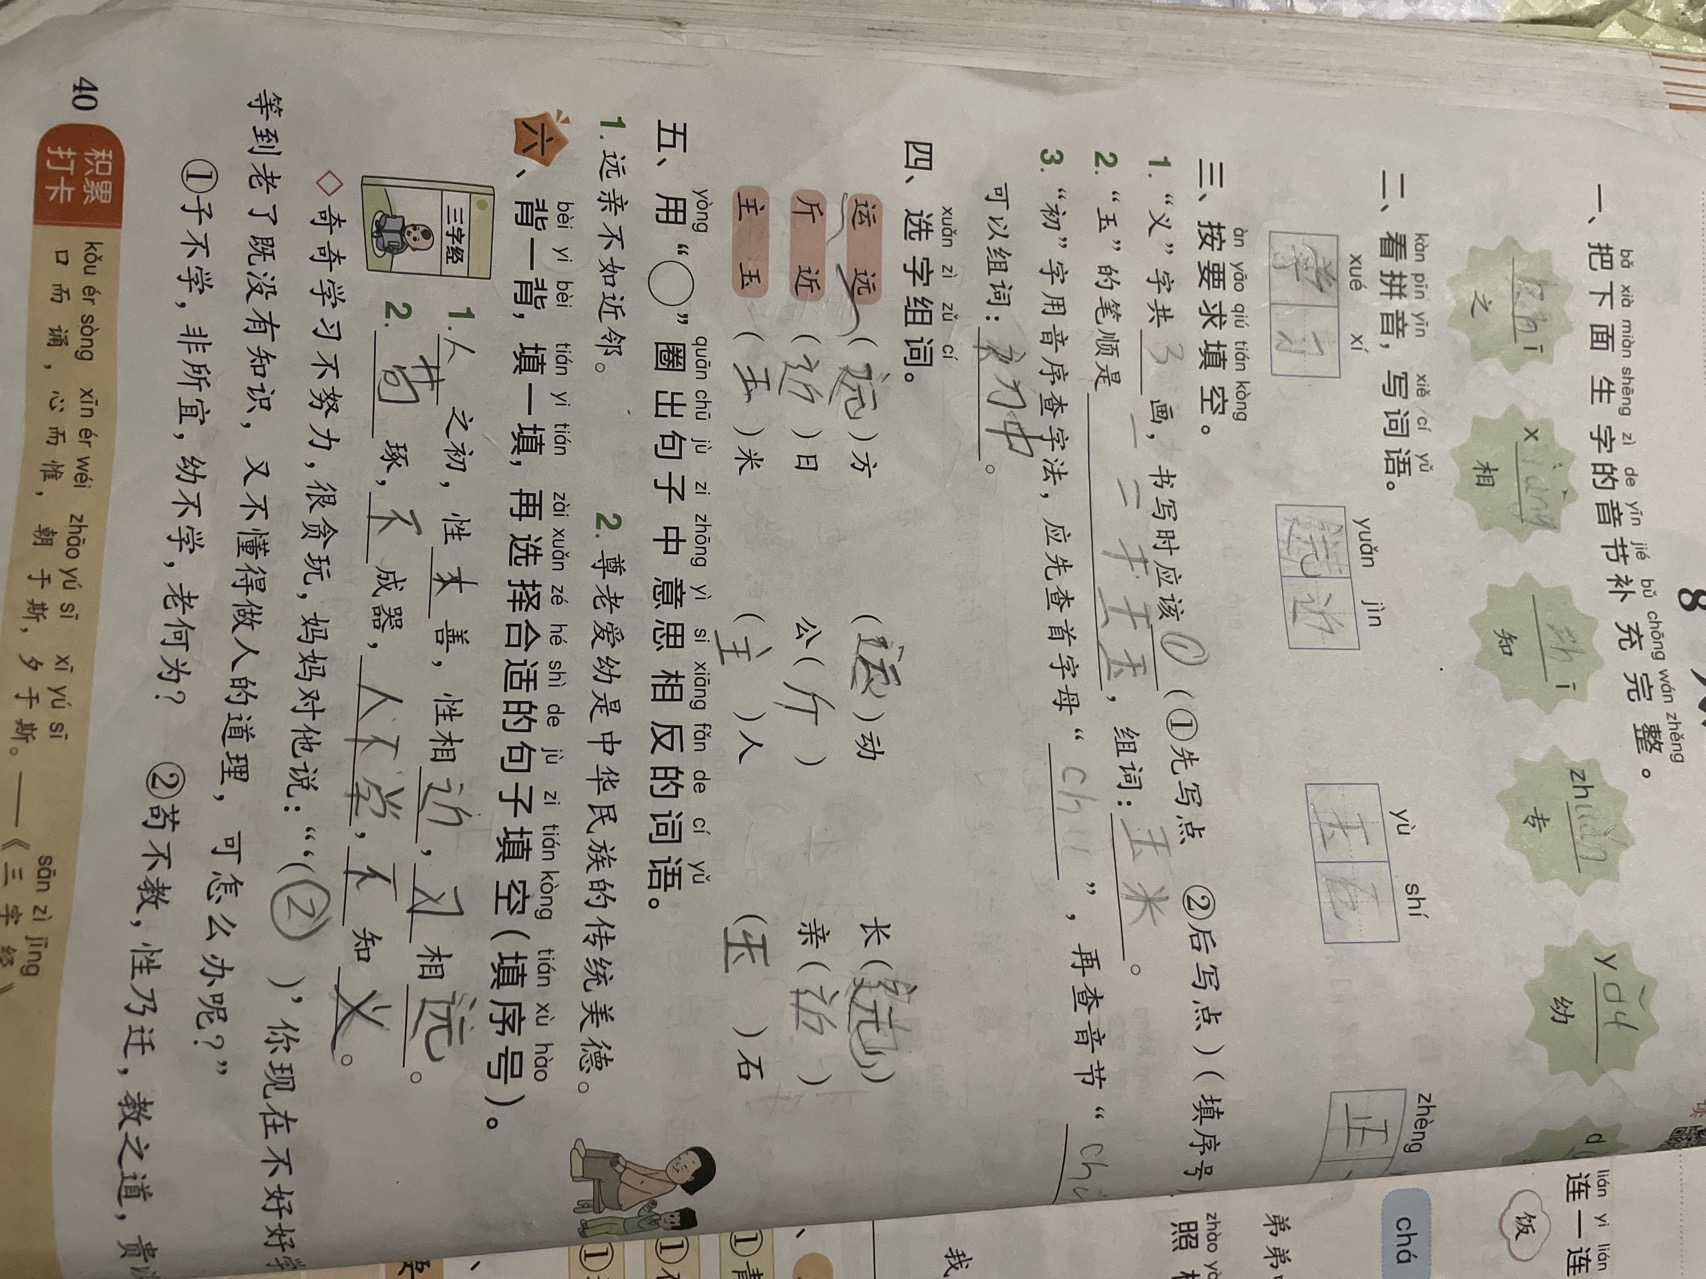 8 人
bǎ xià miàn shēng zì de yīn jié bǔ chōng wán zhěng
一、把下面生字的音节补充完整。
zhī xiàng zhī zhuān yòu d
之 相 知 专 幼
kàn pīn yīn xiě cí yǔ
二、看拼音，写词语。
xué xí yuǎn jìn yù shí zhèng
学习 远近 玉石 正
àn yāo qiú tián kòng
三、按要求填空。
1.“义”字共3画，书写时应该①(①先写点 ②后写点)(填序号
2.“玉”的笔顺是一二干王玉，组词：玉米。
3.“初”字用音序查字法，应先查首字母“chu”，再查音节“chu
可以组词：初中。
xuǎn zì zǔ cí
四、选字组词。
运 远 (远)方 (运)动 长(远)
斤 近 (近)日 公(斤) 亲(近)
主 玉 (玉)米 (主)人 (玉)石
yòng quān chū jù zi zhōng yì si xiāng fǎn de cí yǔ
五、用“○”圈出句子中意思相反的词语。
1.远亲不如近邻。 2.尊老爱幼是中华民族的传统美德。
bèi yi bèi tián yi tián zài xuǎn zé hé shì de jù zi tián kòng tián xù hào
六、背一背，填一填，再选择合适的句子填空(填序号)。
三字经
1.人之初，性本善，性相近，习相远。
2.琢，不成器，人不学，不知义。
◇奇奇学习不努力，很贪玩，妈妈对他说：“‘(②)’你现在不好好学
等到老了既没有知识，又不懂得做人的道理，可怎么办呢？”
①子不学，非所宜，幼不学，老何为？ ②苟不教，性乃迁，教之道，贵
40
积累打卡
kǒu ér sòng xīn ér wéi zhāo yú sī xī yú sī sān zì jīng
口而诵，心而惟，朝于斯，夕于斯。——《三字经》
lián yi lián
连一连
饭
chá
弟弟
zhào
照
我
①青
①
①